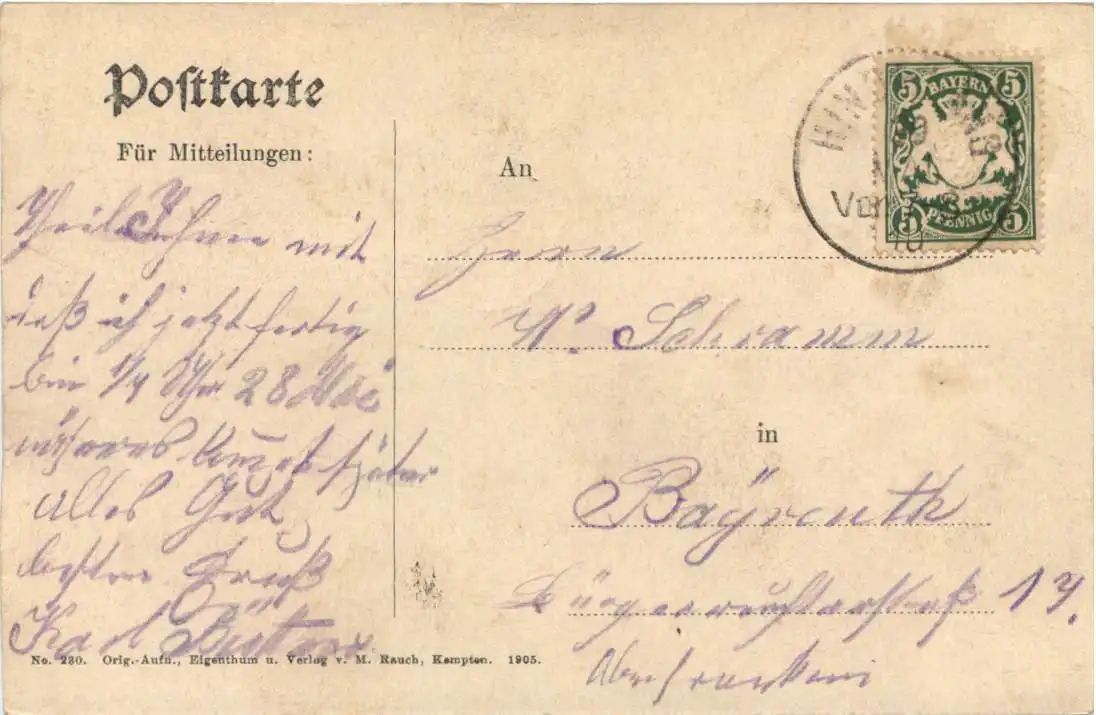 Postkarte
Für Mitteilungen:
Theile Ihnen mit
daß ich jetzt fertig
bin 1/4 Uhr 28 Mai
näheres kommt später
alles Gute
besten Gruß
Karl
An
Herrn
Schramm
in
Bayreuth
Bürgerreutherstraß 17.
Oberfranken
5 BAYERN 5
5 PFENNIG 5
Vor. 7-8
10
No. 230. Orig.-Aufn., Eigenthum u. Verlag v. M. Rauch, Kempten. 1905.